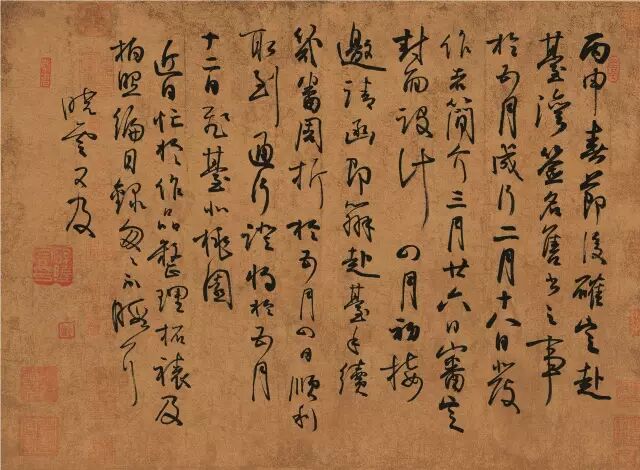 丙申春節後確定赴
臺灣簽名售書之事
於五月成行二月十八日發
作者簡介三月廿六日審定
封面設計四月初接
邀請函即辦赴臺手續
幾番周折於五月四日順利
取到通行證將於五月
十二日飛臺北桃園
近日忙於作品整理拓裱及
拍照編目錄匆匆不暇
曉雲又及